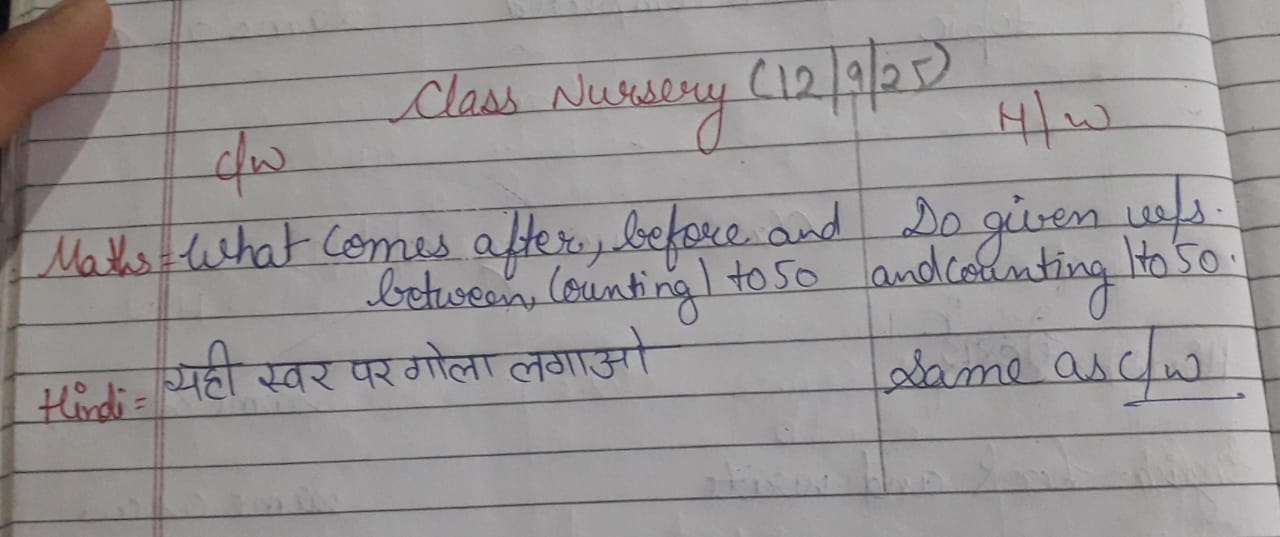 Class Nursery (12/9/25)
C/w H/w
Maths = What comes after, before and Do given w/s.
between, Counting 1 to 50 and counting 1 to 50.
Hindi = सही स्वर पर गोला लगाओ Same as C/w